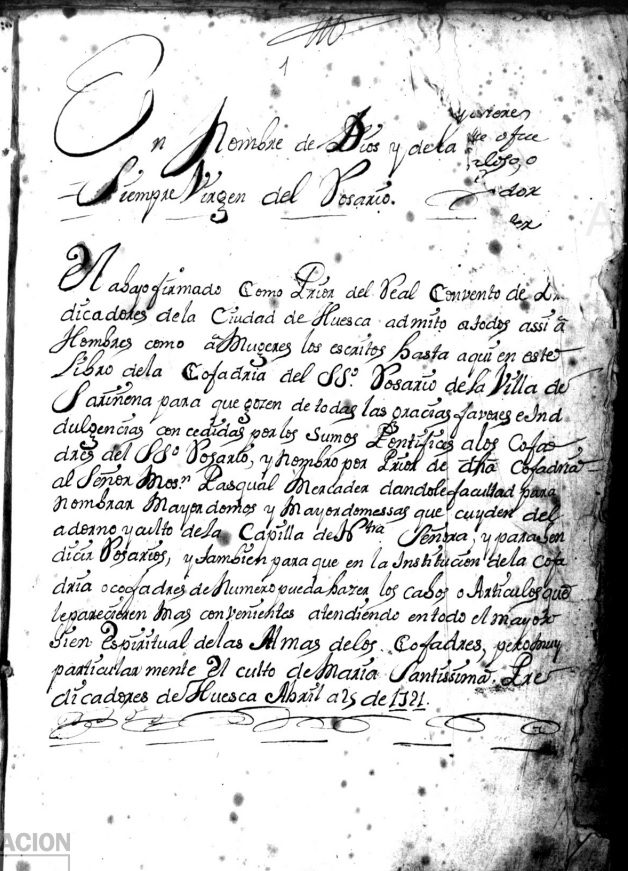 1
En Nombre de Dios y de la
Siempre Virgen del Rosario.
El abajo firmado Como Prior del Real Convento de Pre
dicadores de la Ciudad de Huesca admito a todos assi â
Hombres como â Mugeres los escritos hasta aqui en este
Libro dela Cofadria del SS.º Rosario de la Villa de
Sariñena para que gozen de todas las gracias favores e Ind
dulgencias concedidas por los Sumos Pontifices a los Cofa
dres del SSº Rosario, y nombro por Prior de dha Cofadria
al Señor Mos.n Pasqual Mercader dandole facultad para
nombrar Mayordomos y Mayordomessas que cuyden del
adorno y culto de la Capilla de Ntra Señora, y para ben
dicir Rosarios, y tambien para que en la Institucion de la Cofa
dria o cofadres de Numero pueda hazer los cabos o Articulos que
le parecieren mas convenientes atendiendo en todo el mayor
bien Espiritual de las Almas de los Cofadres, pero muy
particularmente Al culto de Maria Santissima. Pre
dicadores de Huesca Abril a 25 de 1721.
ACION